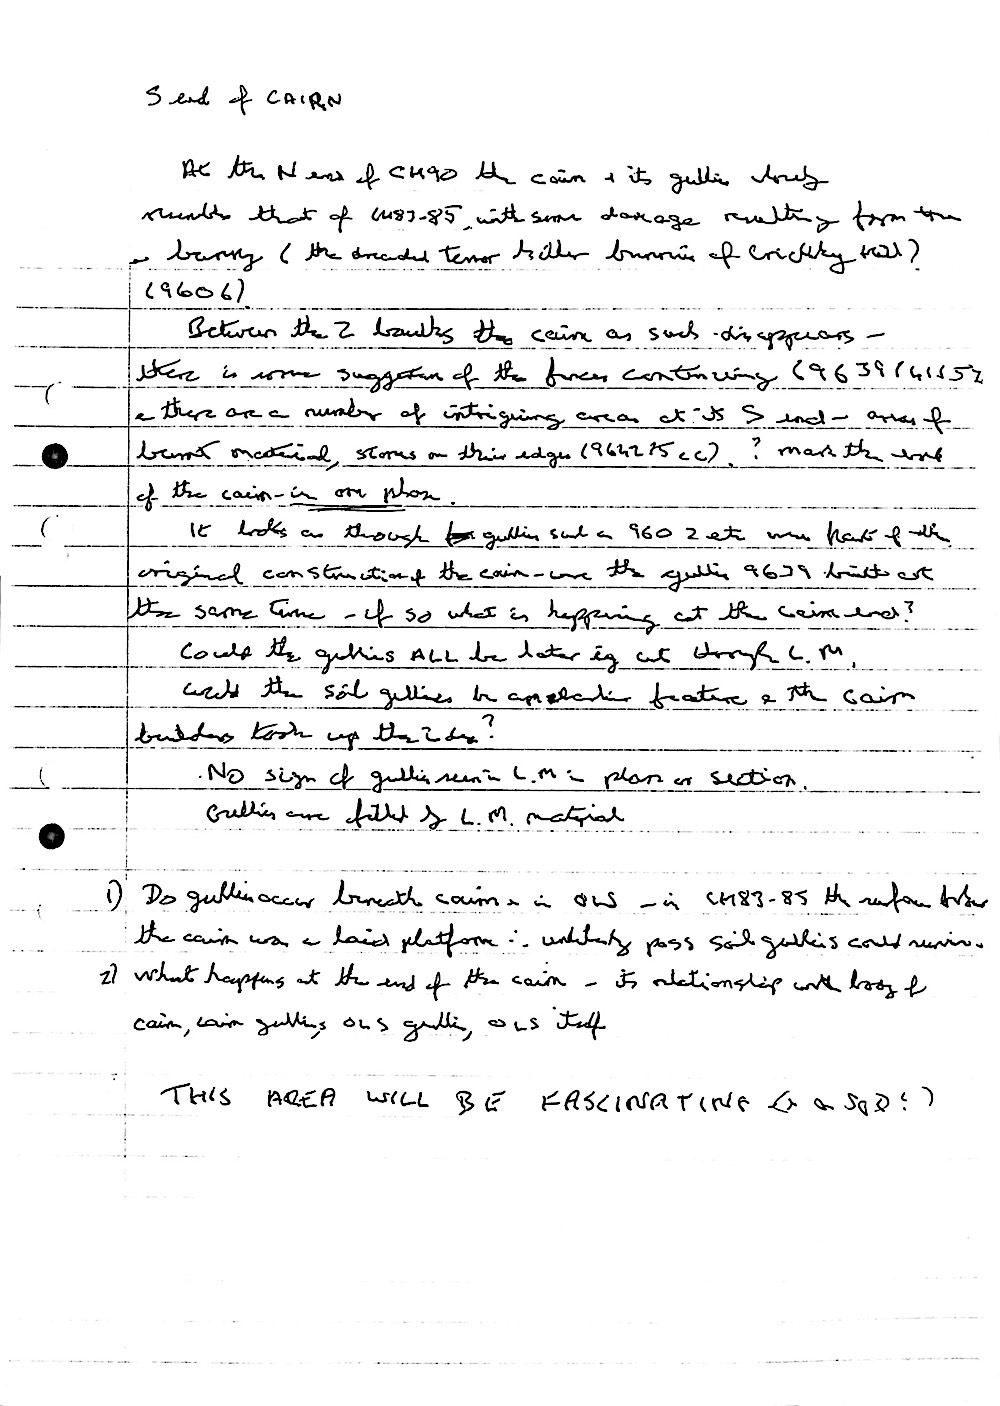 S end of CAIRN
At the N end of CH90 the cairn + its gullies closely
resembles that of CH83-85, with some damage resulting from
bunny (the dreaded terror killer bunnies of Crickley Hill)
(9606)
Between the 2 baulks the cairn as such disappears -
there is some suggestion of the continuing (9639
& there are a number of intriguing areas at its S end - areas of
burnt material, stones on their edges ? mark the end
of the cairn - in one phase.
It looks as though gullies such as 9602 etc were part of the
original construction of the cairn - were the gullies 9639 built at
the same time - if so what is happening at the cairn end?
Could the gullies ALL be later eg cut through L.M.
Could the soil gullies be an earlier feature & the cairn
builders took up the idea?
No sign of gullies seen in L.M in plan or section.
Gullies are filled by L.M. material
1) Do gullies occur beneath cairn & in OLS - in CH83-85 the surface below
the cairn was a laid platform ∴ unlikely poss soil gullies could survive.
2) What happens at the end of the cairn - its relationship with body of
cairn, cairn gullies, OLS gullies, OLS itself
THIS AREA WILL BE FASCINATING (& a SOD!)